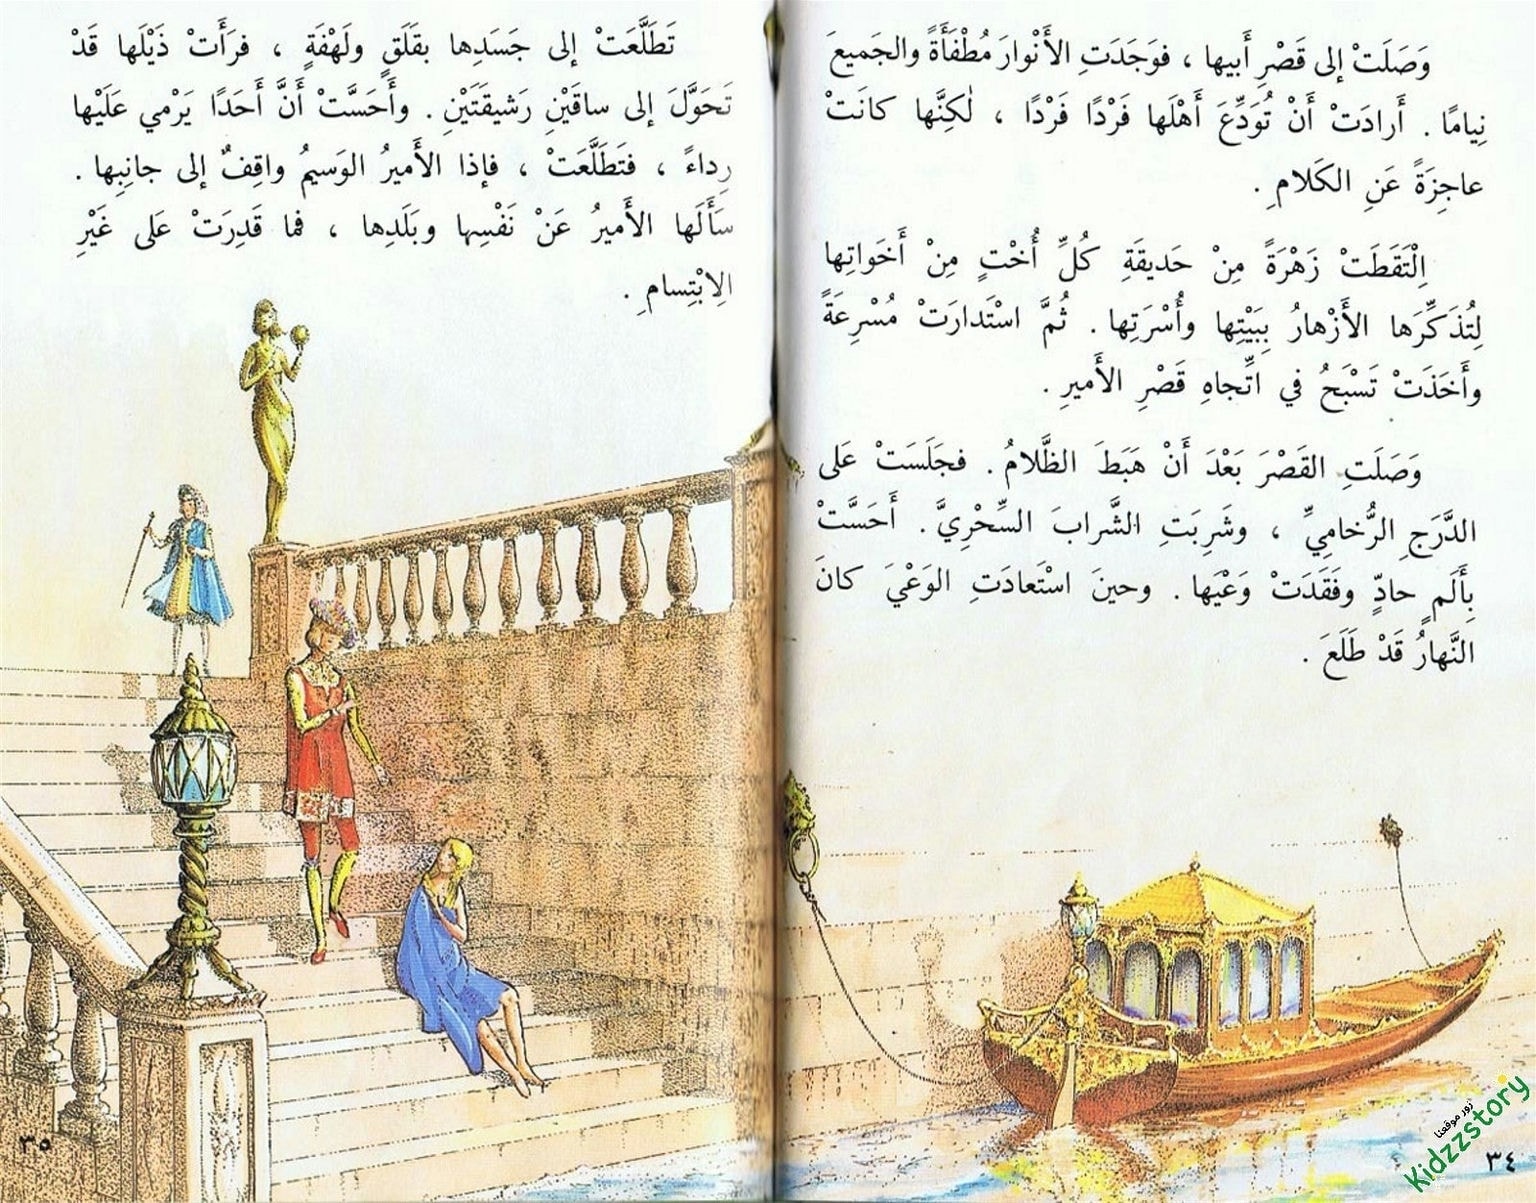 وَصَلَتْ إلى قَصْرِ أَبيها ، فوَجَدَتِ الأَنْوارَ مُطْفَأَةً والجَميعَ
نِيامًا . أَرادَتْ أَنْ تُوَدِّعَ أَهْلَها فَرْدًا فَرْدًا ، لٰكِنَّها كانَتْ
عاجِزَةً عَنِ الكَلامِ .
اِلْتَقَطَتْ زَهْرَةً مِنْ حَديقَةِ كُلِّ أُخْتٍ مِنْ أَخَواتِها
لِتُذَكِّرَها الأَزْهارُ بِبَيْتِها وأُسْرَتِها . ثُمَّ اسْتَدارَتْ مُسْرِعَةً
وأَخَذَتْ تَسْبَحُ في اتِّجاهِ قَصْرِ الأَميرِ .
وَصَلَتِ القَصْرَ بَعْدَ أَنْ هَبَطَ الظَّلامُ . فجَلَسَتْ عَلى
الدَّرَجِ الرُّخامِيِّ ، وشَرِبَتِ الشَّرابَ السِّحْرِيَّ . أَحَسَّتْ
بِأَلَمٍ حادٍّ وفَقَدَتْ وَعْيَها . وحينَ اسْتَعادَتِ الوَعْيَ كانَ
النَّهارُ قَدْ طَلَعَ .
٣٤
زور موقعنا
Kidzzstory
تَطَلَّعَتْ إلى جَسَدِها بقَلَقٍ ولَهْفَةٍ ، فرَأَتْ ذَيْلَها قَدْ
تَحَوَّلَ إلى ساقَيْنِ رَشيقَتَيْنِ . وأَحَسَّتْ أَنَّ أَحَدًا يَرْمي عَلَيْها
رِداءً ، فتَطَلَّعَتْ ، فإذا الأَميرُ الوَسيمُ واقِفٌ إلى جانِبِها .
سَأَلَها الأَميرُ عَنْ نَفْسِها وبَلَدِها ، فما قَدِرَتْ عَلى غَيْرِ
الِابْتِسامِ .
٣٥